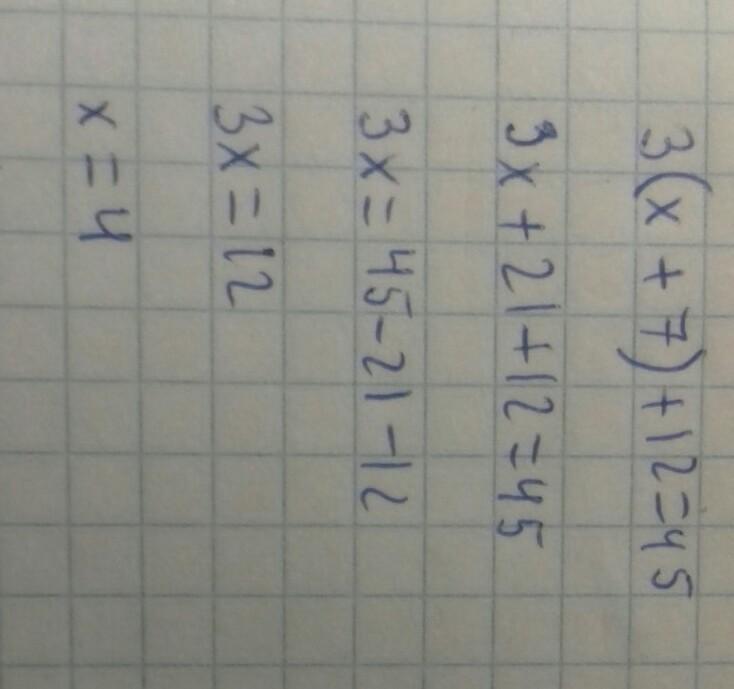 3(x + 7) + 12 = 45
3x + 21 + 12 = 45
3x = 45 - 21 - 12
3x = 12
x = 4